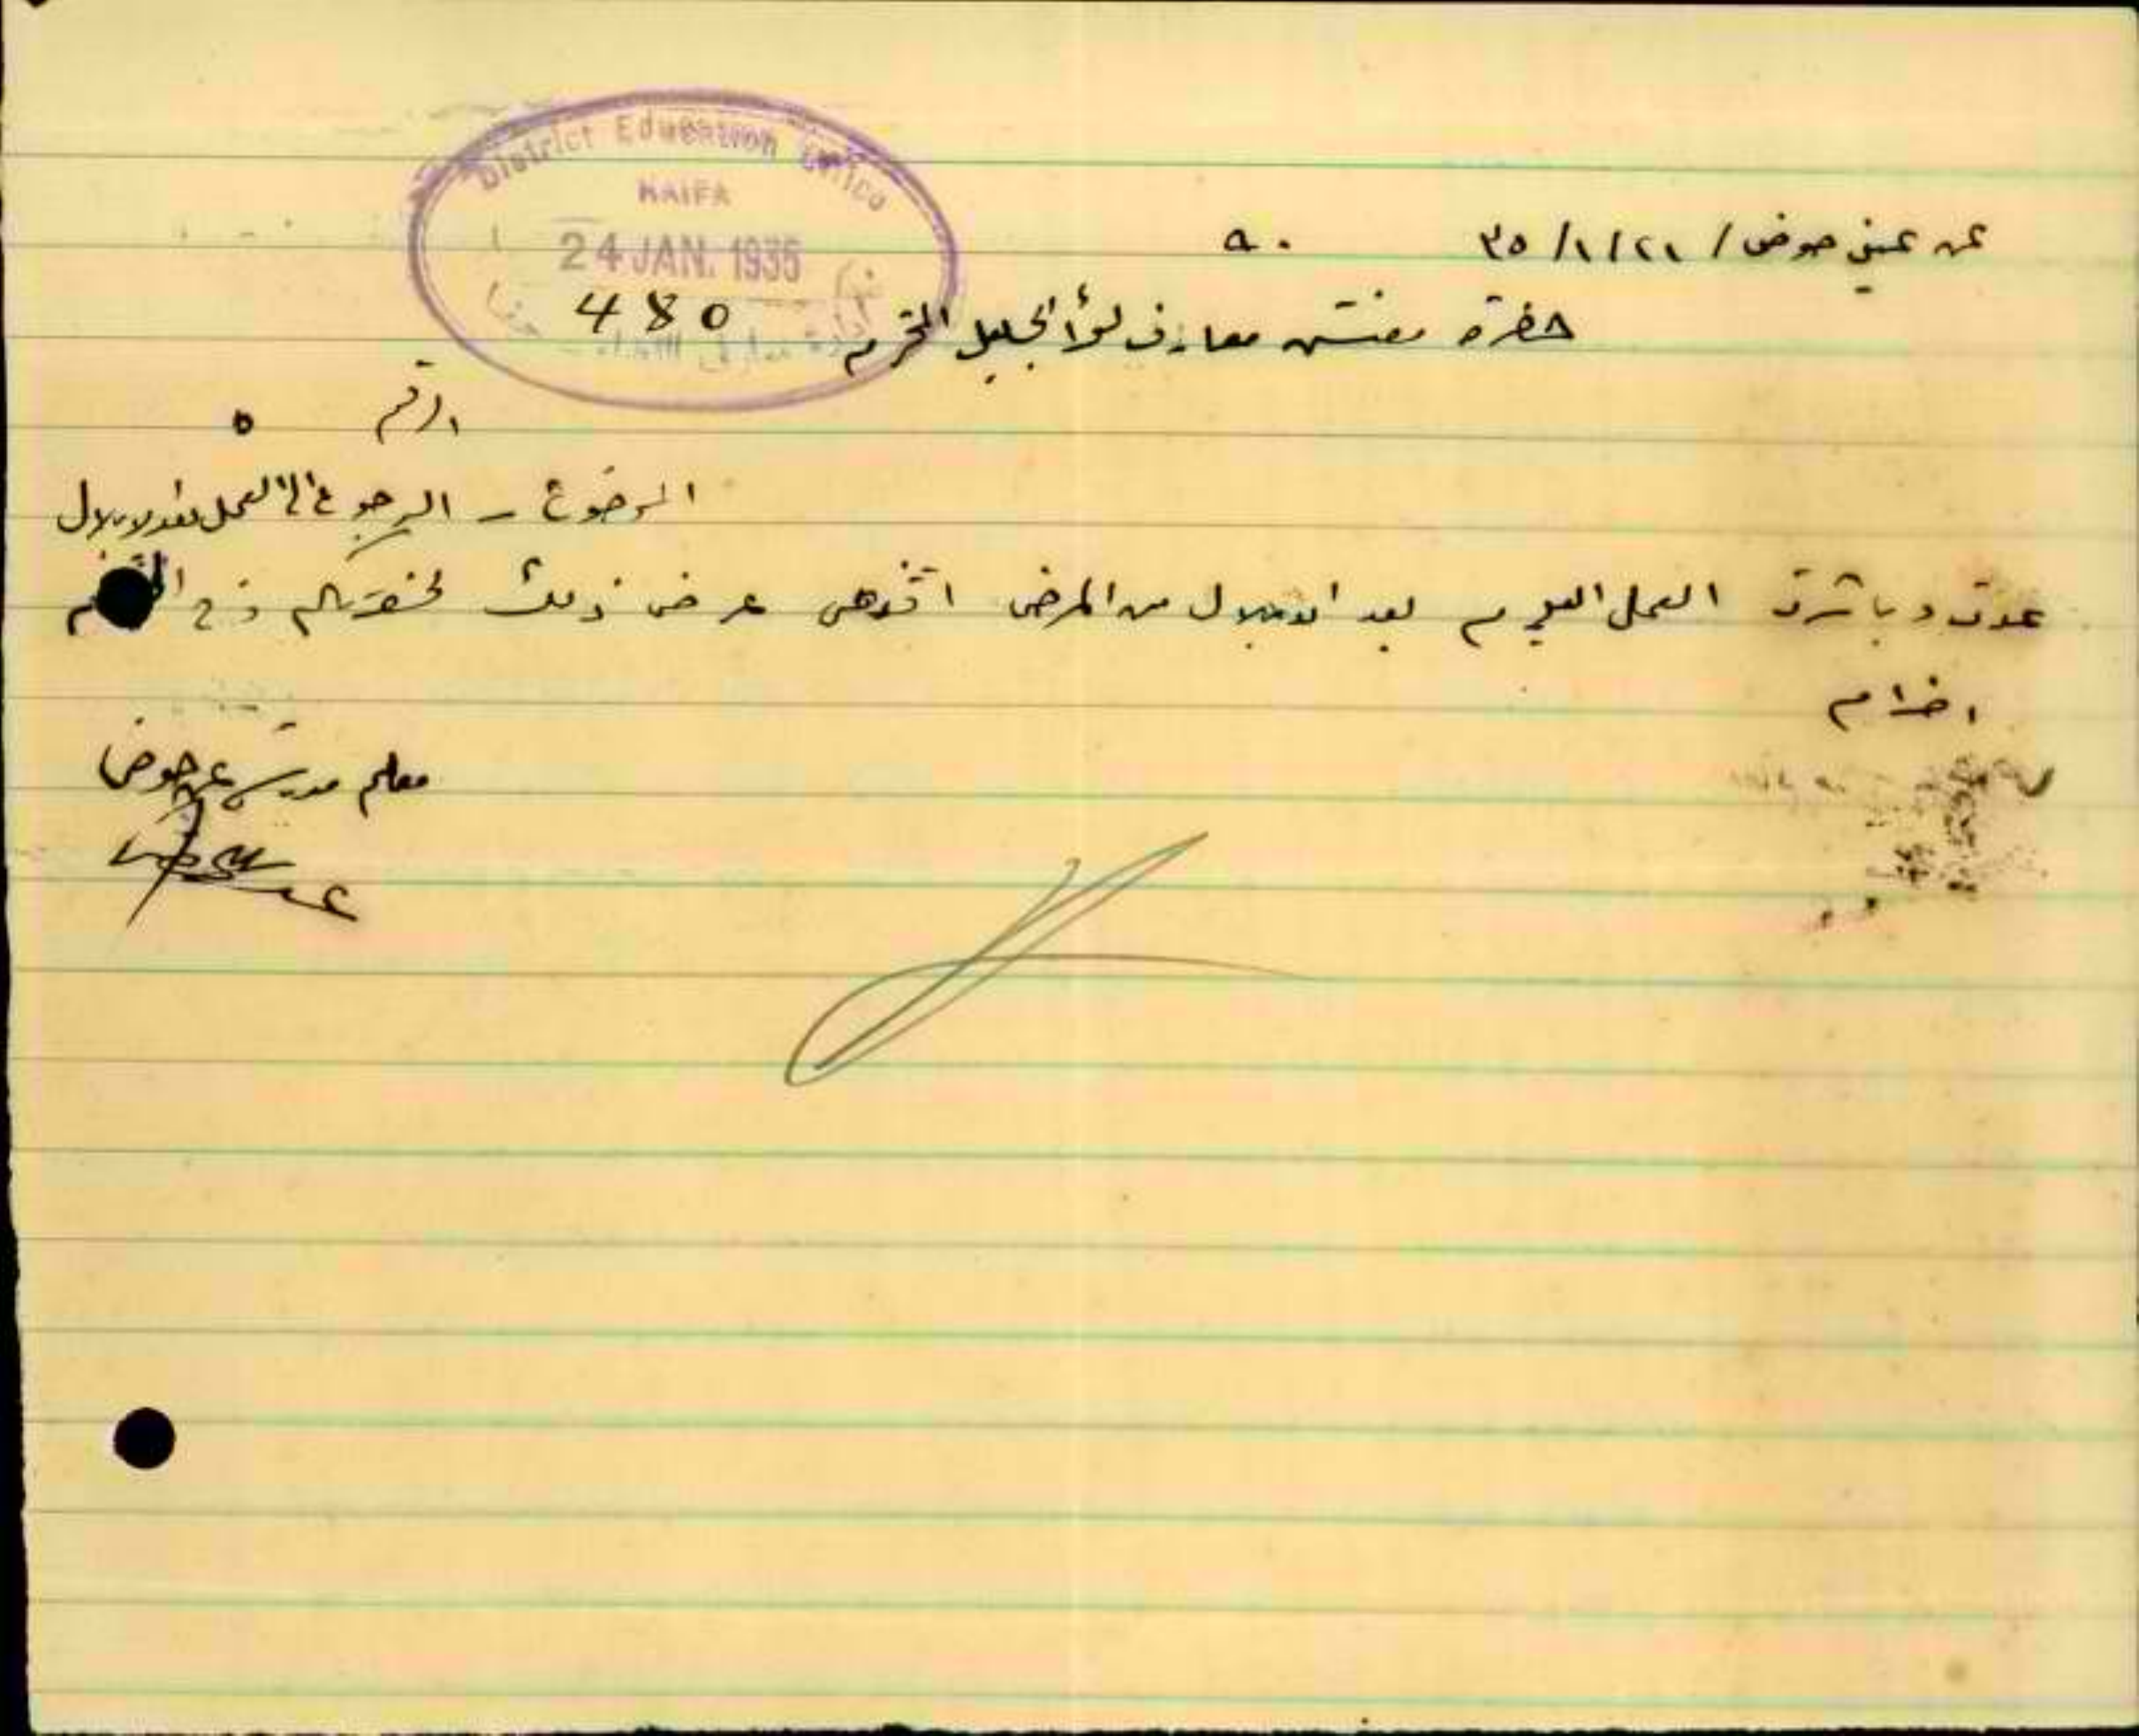 District Education Office
HAIFA
24 JAN. 1935
480
عن عين حوض / ٢١ / ١ / ٣٥
حضرة مفتش معارف لواء الجليل المحترم
الرقم ٥
الموضوع - الرجوع الى العمل بعد الابلال
عدت وباشرت العمل اليوم بعد الابلال من المرض اقتضى عرض ذلك لحضرتكم
معلم مدرسة عين حوض